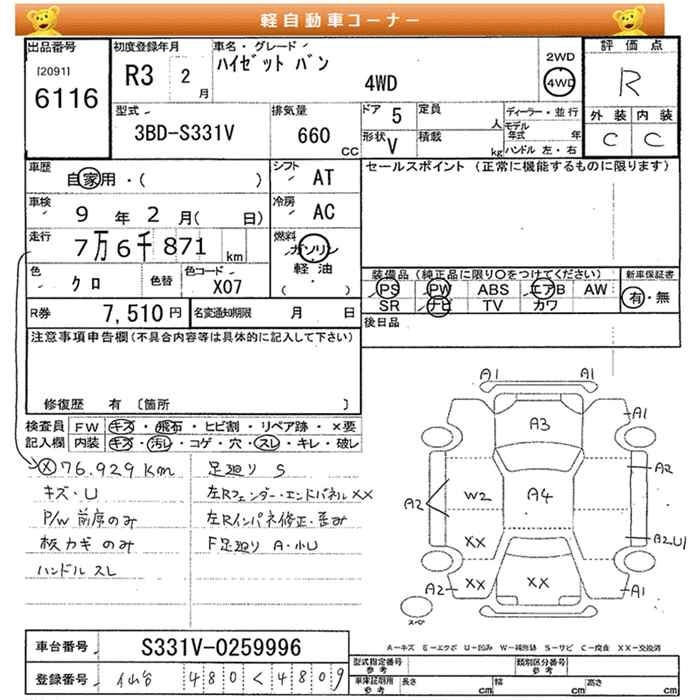 軽自動車コーナー
出品番号
[2091]
6116
初度登録年月
R3 2 月
車名・グレード
ハイゼット バン
4WD
2WD
4WD
評価点
R
外装 内装
C C
型式
3BD-S331V
排気量
660 CC
ドア 5
形状 V
定員 人
積載 kg
ディーラー・並行
モデル年式 年
ハンドル 左・右
車歴
自家用・( )
シフト AT
車検
9 年 2 月( 日)
冷房 AC
走行
7万6千871 km
燃料
ガソリン
軽油
( ・ )
色 クロ
色替
色コード X07
R券 7,510 円
名変通知期限 月 日
セールスポイント (正常に機能するものに限ります)
装備品 (純正品に限り○をつけてください)
新車保証書
PS PW ABS エアB AW
SR ナビ TV カワ
有・無
後日品
注意事項申告欄(不具合内容等は具体的に記入して下さい)
修復歴 有 〔箇所 〕
検査員記入欄
FW キズ・飛石・ヒビ割・リペア跡・×要
内装 キズ・汚レ・コゲ・穴・スレ・キレ・破レ
Ⓧ76.929Km
キズ・U
P/W 前席のみ
板カギのみ
ハンドルスレ
足廻り S
左Rフェンダー・エンドパネルXX
左Rインパネ修正・歪み
F足廻り A・小U
A1 A1
A3
A1
A2
A2
W2
A4
XX
B2U1
A2
XX
XX
A1
スペア
A−キズ E−エクボ U−凹み W−補修跡 S−サビ C−腐食 XX−交換済
車台番号 S331V-0259996
登録番号 仙台 480く4809
型式指定番号 参考
類別区分番号 参考
車庫証明用 参考
長さ cm
幅 cm
高さ cm